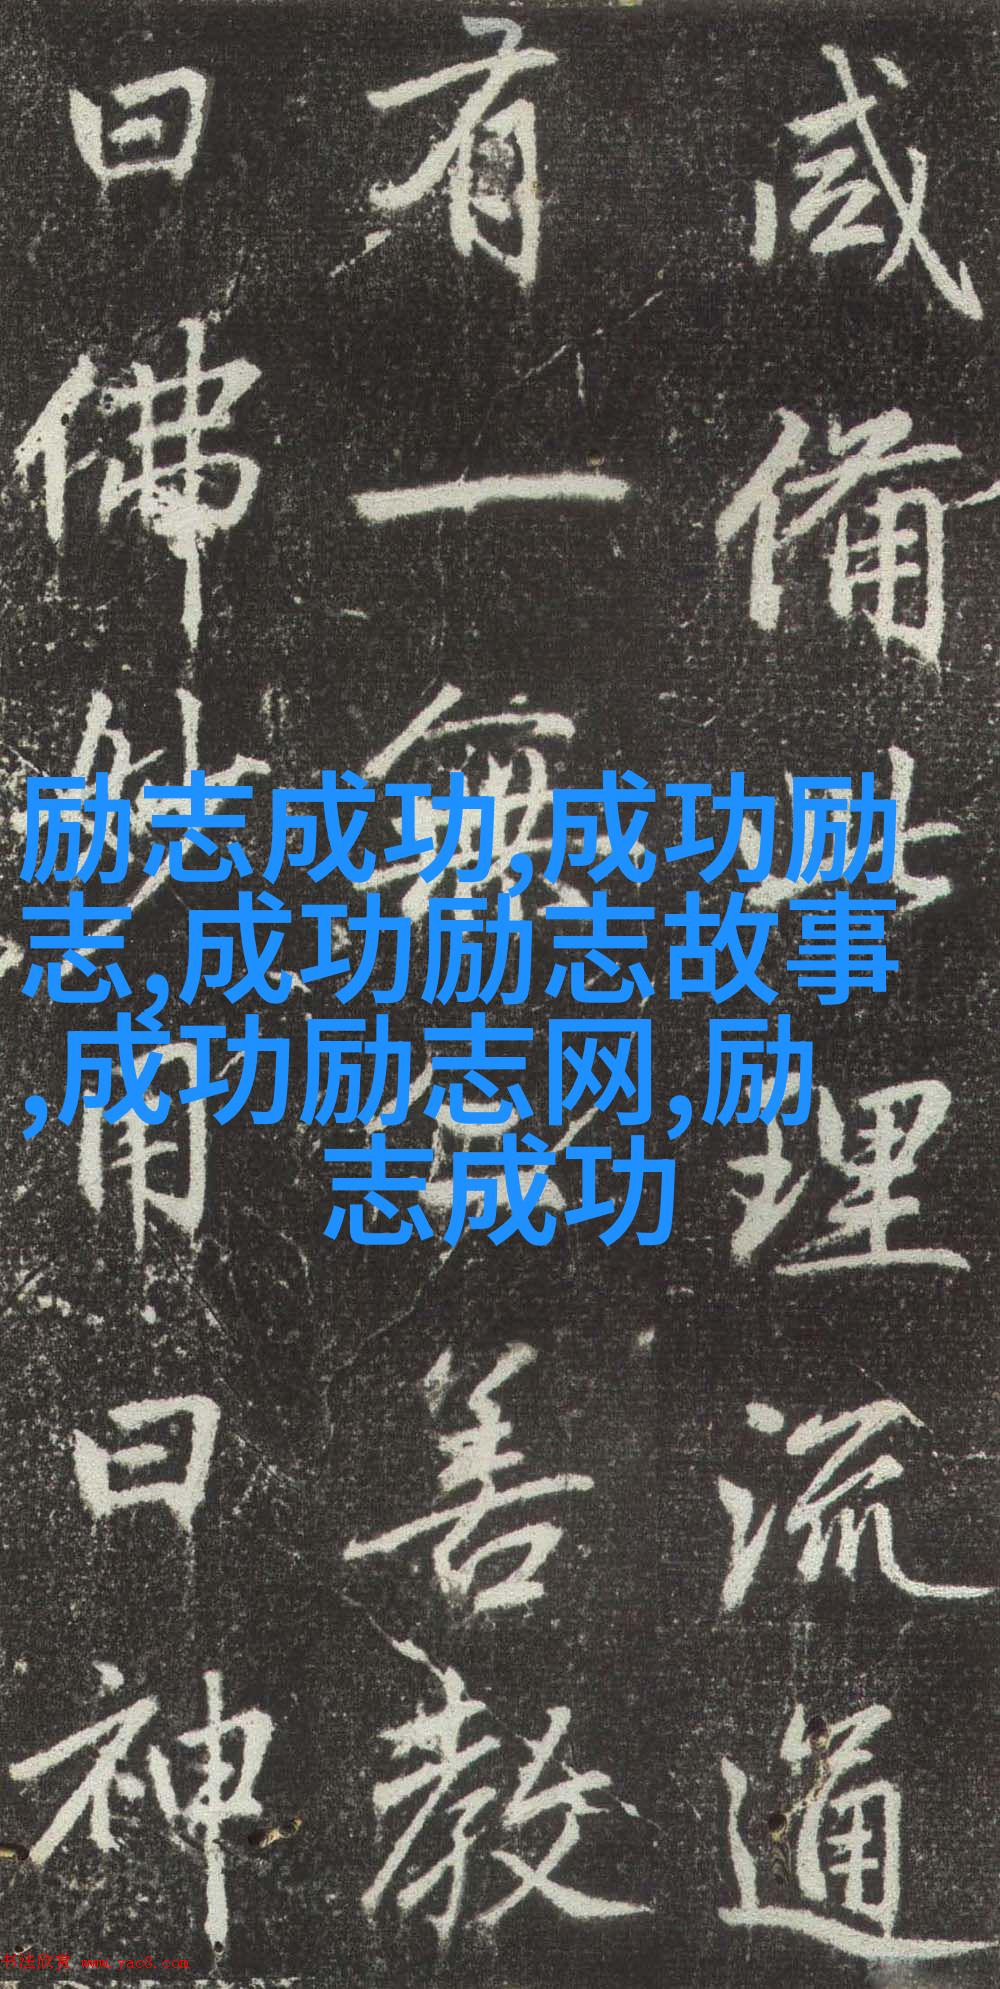 咸備此理流通
有一無善教
曰佛妙用曰神
励志成功,成功励
志,成功励志故事
,成功励志网,励
志成功
书法欣赏 www.yac8.com